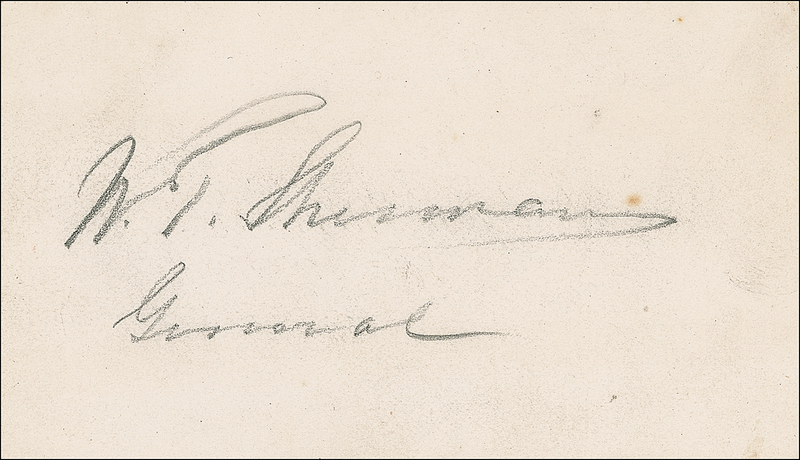 W. T. Sherman
General